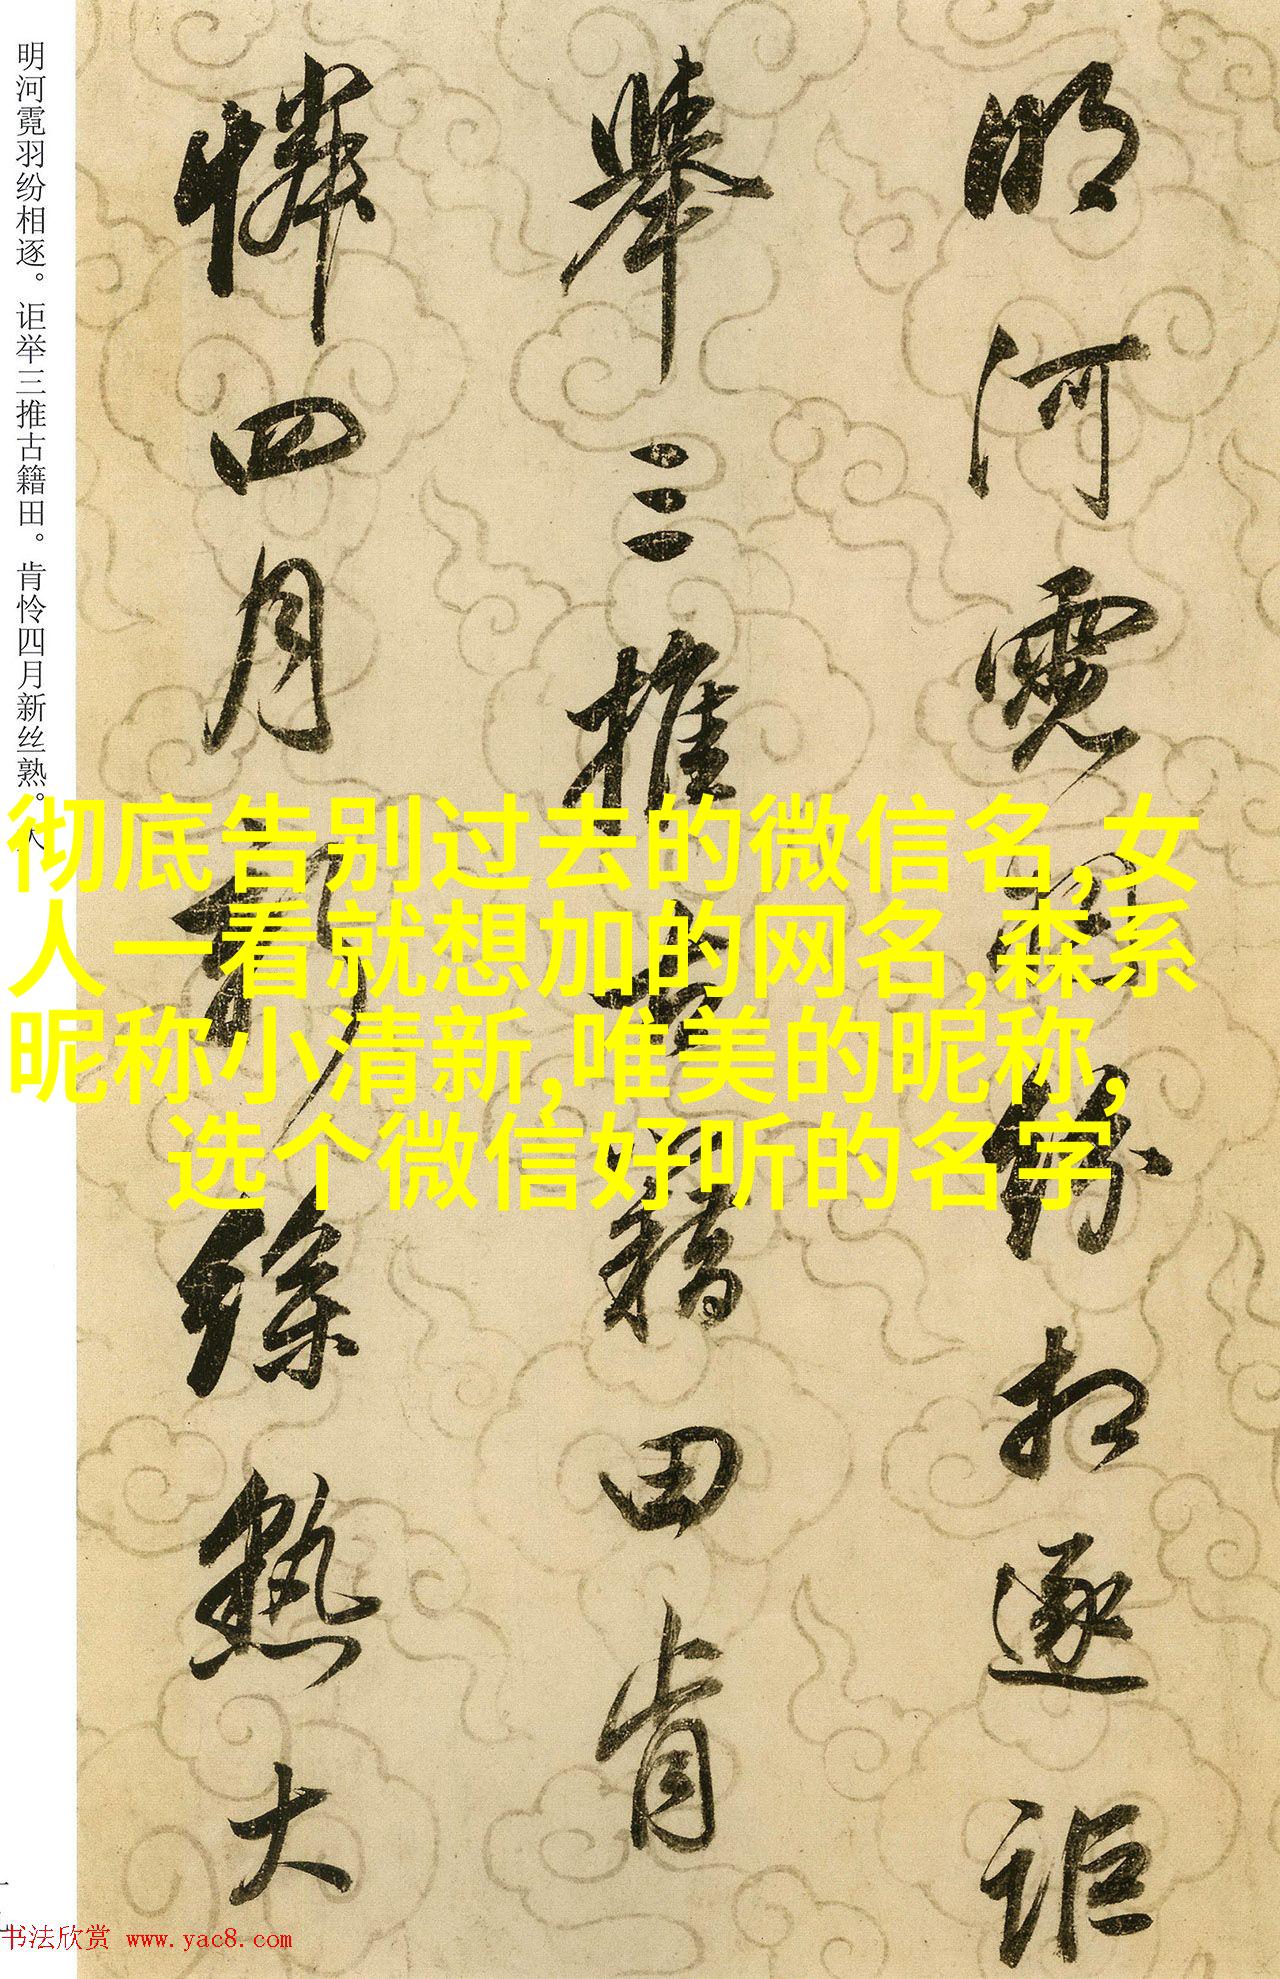 明河霓羽纷相逐。讵举三推古籍田。肯怜四月新丝熟。大
明河霓羽纷相逐讵
举三推古籍田肯
憐四月新絲熟大
彻底告别过去的微信名,女
人一看就想加的网名,森系
昵称小清新,唯美的昵称,
选个微信好听的名字
书法欣赏 www.yac8.com